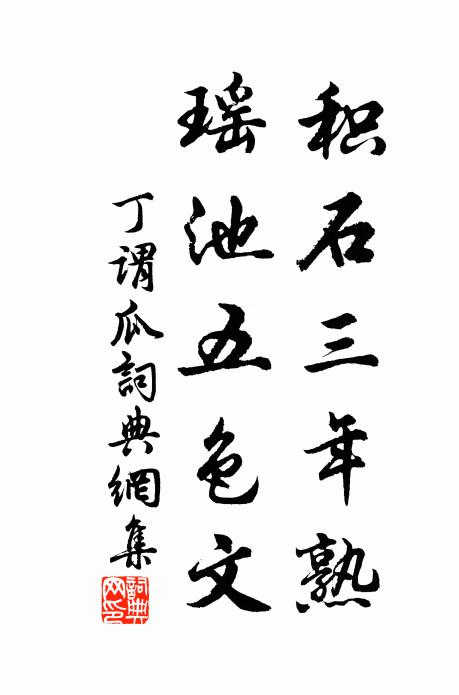 积石三年熟
瑶池五色文
丁谓瓜詞典網集
詞典网印